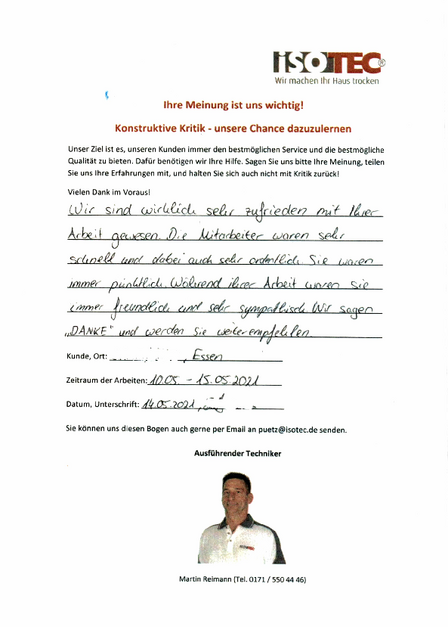 ISOTEC®
Wir machen Ihr Haus trocken
Ihre Meinung ist uns wichtig!
Konstruktive Kritik - unsere Chance dazuzulernen
Unser Ziel ist es, unseren Kunden immer den bestmöglichen Service und die bestmögliche
Qualität zu bieten. Dafür benötigen wir Ihre Hilfe. Sagen Sie uns bitte Ihre Meinung, teilen
Sie uns Ihre Erfahrungen mit, und halten Sie sich auch nicht mit Kritik zurück!
Vielen Dank im Voraus!
Wir sind wirklich sehr zufrieden mit Ihrer
Arbeit gewesen. Die Mitarbeiter waren sehr
schnell und dabei auch sehr ordentlich. Sie waren
immer pünktlich. Während ihrer Arbeit waren sie
immer freundlich und sehr sympathisch. Wir sagen
„DANKE" und werden Sie weiterempfehlen
Kunde, Ort: , Essen
Zeitraum der Arbeiten: 10.05 - 15.05.2021
Datum, Unterschrift: 14.05.2021,
Sie können uns diesen Bogen auch gerne per Email an puetz@isotec.de senden.
Ausführender Techniker
ISOTEC
Martin Reimann (Tel. 0171 / 550 44 46)